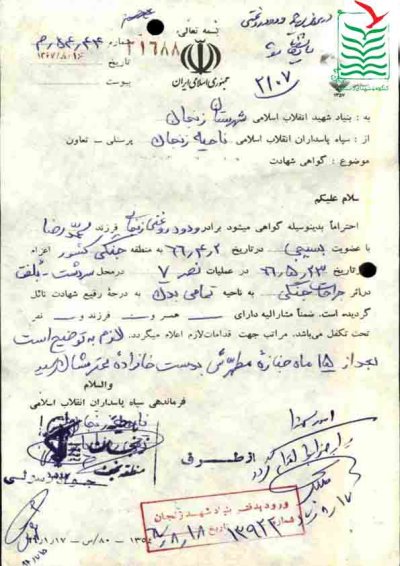 بسمه تعالی
شماره ۵۴،۴۴ م
۲۱۶۸۸
تاریخ ۱۳۶۷/۸/۱۶
پیوست
جمهوری اسلامی ایران
۲۱۰۷
به : بنیاد شهید انقلاب اسلامی شهرستان زنجان
از : سپاه پاسداران انقلاب اسلامی ناحیه زنجان پرسنلی – تعاون
موضوع : گواهی شهادت
سلام علیکم
احتراماً بدینوسیله گواهی میشود برادر ودود روغنی زنجانی فرزند محمدرضا
با عضویت بسیجی درتاریخ ۶۶،۴،۲ به منطقه جنگی کشور اعزام
درتاریخ ۶۶،۵،۲۳ در عملیات نصر ۷ درمحل سردشت - بلفت
دراثر جراحات جنگی به ناحیه تمامی بدن به درجهٔ رفیع شهادت نائل
گردیده است. ضمناً مشارالیه دارای — همسر و — فرزند و — نفر
تحت تکفل می‌باشد. مراتب جهت اقدامات لازم اعلام میگردد. لازم به توضیح است
بعد از ۱۵ ماه جنازهٔ مطهرش بدست خانوادهٔ محترمشان رسید
والسلام
فرماندهی سپاه پاسداران انقلاب اسلامی
ناحیه زنجان
از طرف
منطقه
ورود بدفتر بنیاد شهید زنجان
شماره ۱۳۹۲۲ تاریخ ۶۷،۸،۱۸